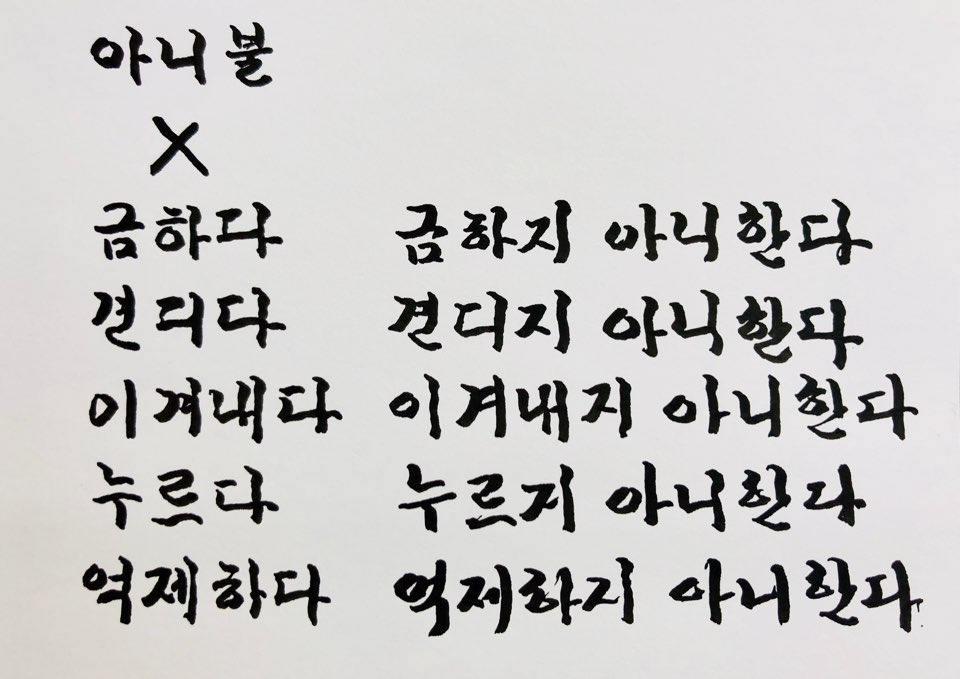 아니불
X
금하다 금하지 아니한다
견디다 견디지 아니한다
이겨내다 이겨내지 아니한다
누르다 누르지 아니한다
억제하다 억제하지 아니한다